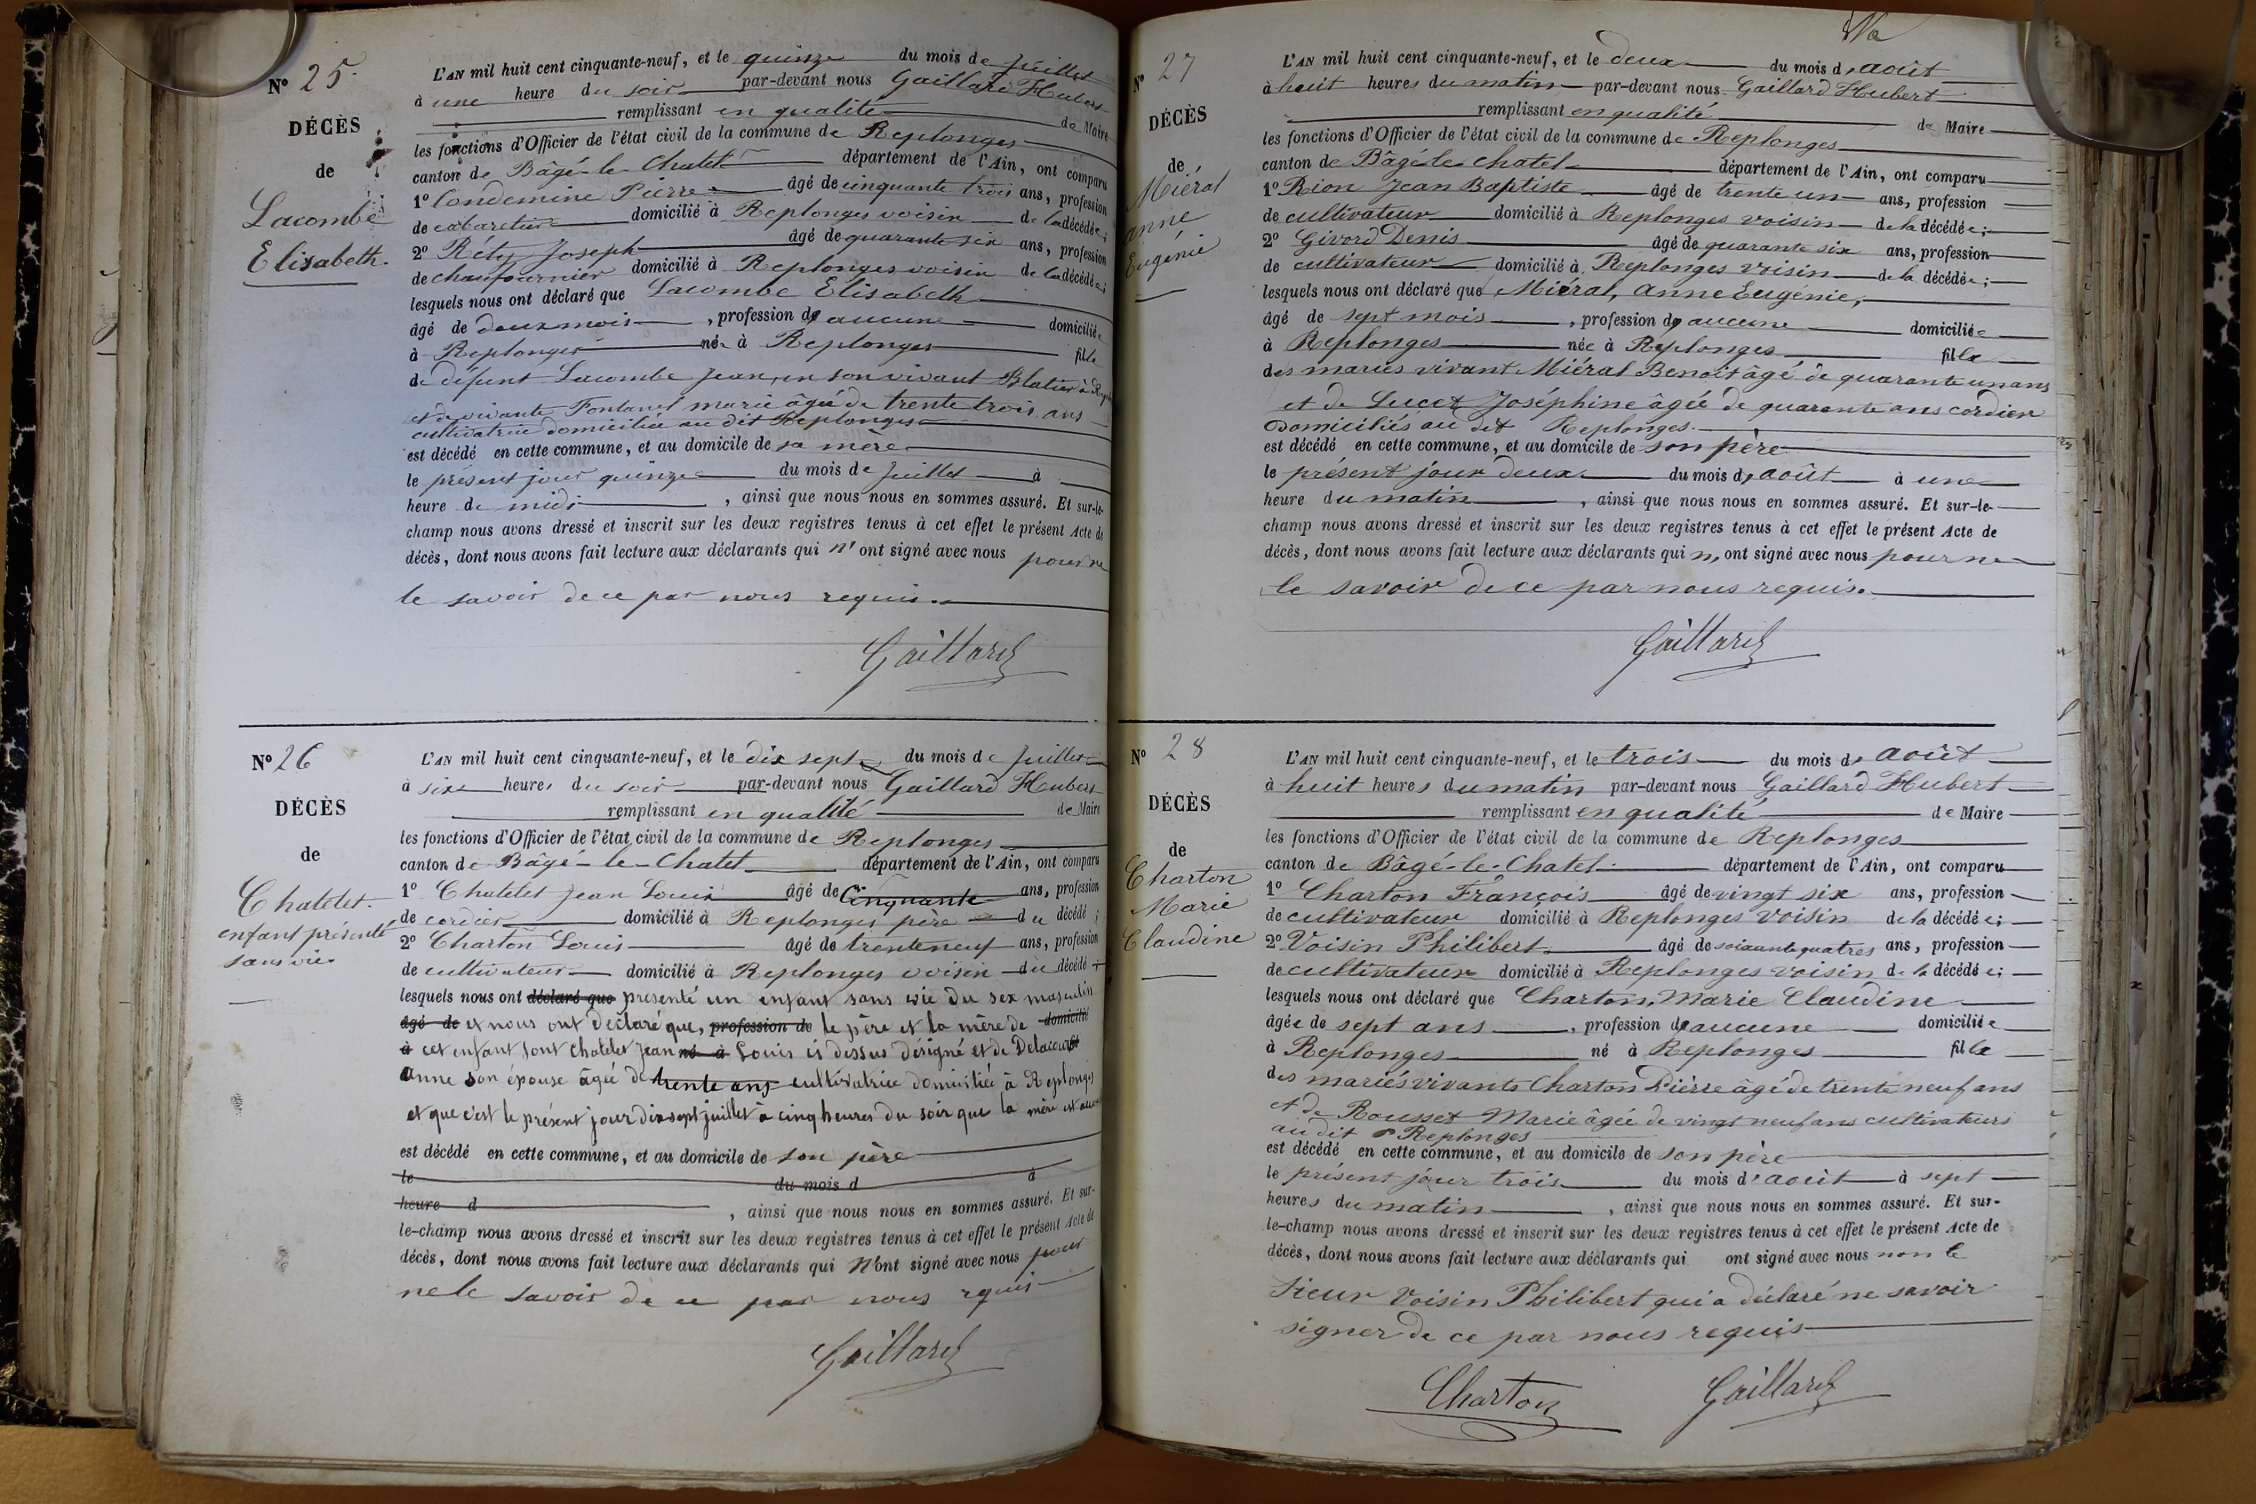 N° 25.
DÉCÈS
de
Lacombe
Elisabeth.
L'AN mil huit cent cinquante-neuf, et le quinze du mois de juillet
à une heure du soir par-devant nous Gaillard Hubert
remplissant en qualité de Maire
les fonctions d'Officier de l'état civil de la commune de Replonges
canton de Bâgé-le-Chatel département de l'Ain, ont comparu
1° Condemine Pierre âgé de cinquante trois ans, profession
de cabaretier domicilié à Replonges voisin de la décédée;
2° Réty Joseph âgé de quarante six ans, profession
de chaufournier domicilié à Replonges voisin de la décédée;
lesquels nous ont déclaré que Lacombe Elisabeth
âgé de deux mois, profession d aucune domiciliée
à Replonges née à Replonges fille
de défunt Lacombe Jean, en son vivant Blatier à
et de vivante Fontanel marie âgée de trente trois ans
cultivatrice domiciliée au dit Replonges
est décédé en cette commune, et au domicile de sa mère
le présent jour quinze du mois de juillet à
heure de midi, ainsi que nous nous en sommes assuré. Et sur-le-
champ nous avons dressé et inscrit sur les deux registres tenus à cet effet le présent Acte de
décès, dont nous avons fait lecture aux déclarants qui n' ont signé avec nous pour ne
le savoir de ce par nous requis.
Gaillard
N° 26
DÉCÈS
de
Chatelet.
enfant présenté
sans vie.
L'AN mil huit cent cinquante-neuf, et le dix sept du mois de juillet
à six heures du soir par-devant nous Gaillard Hubert
remplissant en qualité de Maire
les fonctions d'Officier de l'état civil de la commune de Replonges
canton de Bâgé-le-Chatel département de l'Ain, ont comparu
1° Chatelet Jean Louis âgé de Cinquante ans, profession
de cordier domicilié à Replonges père du décédé;
2° Charton Louis âgé de trente neuf ans, profession
de cultivateur domicilié à Replonges voisin du décédé;
lesquels nous ont déclaré que présenté un enfant sans vie du sex masculin
âgé de et nous ont déclaré que, profession de le père et la mère de domicilié
à cet enfant sont Chatelet Jean né à Louis ci dessus désigné et de Delacourt
Anne son épouse âgée de trente ans cultivatrice domiciliée à Replonges
et que c'est le présent jour dix sept juillet à cinq heures du soir que la mère est
est décédé en cette commune, et au domicile de son père
le du mois d à
heure d, ainsi que nous nous en sommes assuré. Et sur-
le-champ nous avons dressé et inscrit sur les deux registres tenus à cet effet le présent Acte de
décès, dont nous avons fait lecture aux déclarants qui n'ont signé avec nous pour
ne le savoir de ce par nous requis
Gaillard
N° 27
DÉCÈS
de
Miéral
anne
Eugénie
L'AN mil huit cent cinquante-neuf, et le deux du mois d'août
à huit heures du matin par-devant nous Gaillard Hubert
remplissant en qualité de Maire
les fonctions d'Officier de l'état civil de la commune de Replonges
canton de Bâgé-le-chatel département de l'Ain, ont comparu
1° Rion Jean Baptiste âgé de trente un ans, profession
de cultivateur domicilié à Replonges voisin de la décédée;
2° Givord Denis âgé de quarante six ans, profession
de cultivateur domicilié à Replonges voisin de la décédée;
lesquels nous ont déclaré que Miéral, anne Eugénie,
âgé de sept mois, profession d aucune domiciliée
à Replonges née à Replonges fille
des mariés vivant Miéral Benoît âgé de quarante un ans
et de Lucet Joséphine âgée de quarante ans cordier
Domiciliés au dit Replonges.
est décédé en cette commune, et au domicile de son père
le présent jour deux du mois d'août à une
heure du matin, ainsi que nous nous en sommes assuré. Et sur-le-
champ nous avons dressé et inscrit sur les deux registres tenus à cet effet le présent Acte de
décès, dont nous avons fait lecture aux déclarants qui n, ont signé avec nous pour ne
le savoir de ce par nous requis.
Gaillard
N° 28
DÉCÈS
de
Charton
Marie
Claudine
L'AN mil huit cent cinquante-neuf, et le trois du mois d'août
à huit heures du matin par-devant nous Gaillard Hubert
remplissant en qualité de Maire
les fonctions d'Officier de l'état civil de la commune de Replonges
canton de Bâgé-le-Chatel département de l'Ain, ont comparu
1° Charton François âgé de vingt six ans, profession
de cultivateur domicilié à Replonges voisin de la décédée;
2° Voisin Philibert âgé de soixante quatres ans, profession
de cultivateur domicilié à Replonges voisin de la décédée;
lesquels nous ont déclaré que Charton, Marie Claudine
âgée de sept ans, profession d aucune domiciliée
à Replonges né à Replonges fille
des mariés vivants Charton Pierre âgé de trente neuf ans
et de Rousset Marie âgée de vingt neuf ans cultivateurs
au dit Replonges
est décédé en cette commune, et au domicile de son père
le présent jour trois du mois d'août à sept
heures du matin, ainsi que nous nous en sommes assuré. Et sur-
le-champ nous avons dressé et inscrit sur les deux registres tenus à cet effet le présent Acte de
décès, dont nous avons fait lecture aux déclarants qui ont signé avec nous non le
sieur Voisin Philibert qui a déclaré ne savoir
signer de ce par nous requis
Charton Gaillard